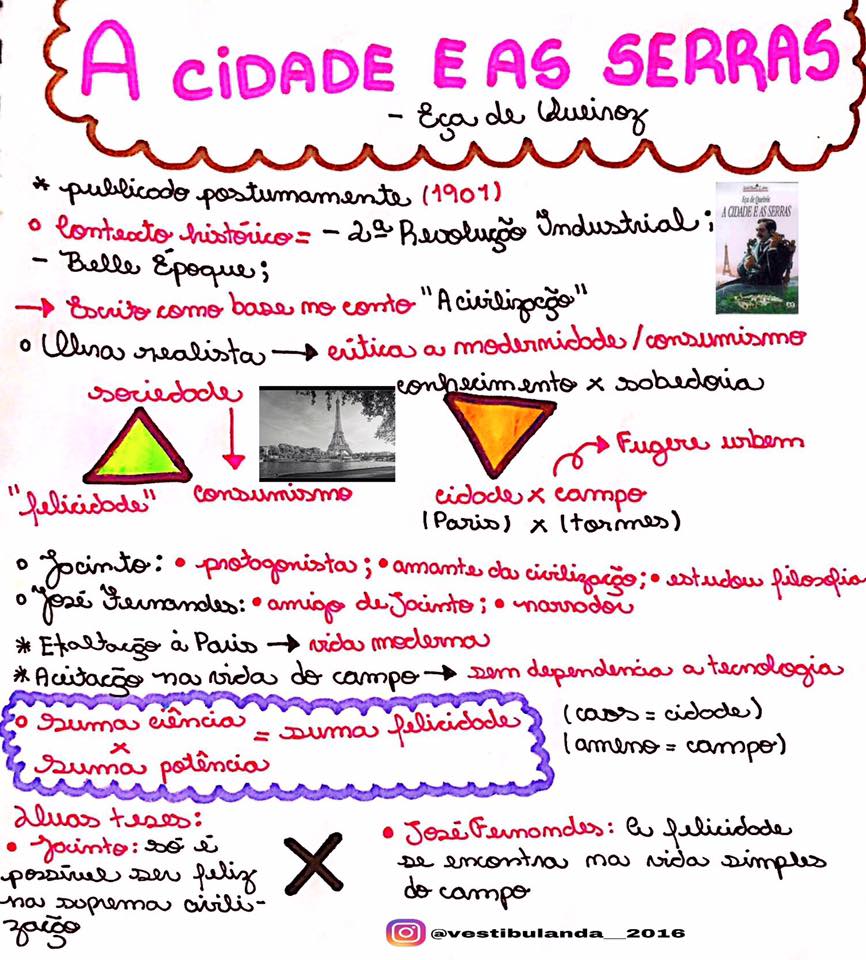 A CIDADE E AS SERRAS
- Eça de Queiroz
* publicado postumamente (1901)
Contexto histórico = - 2ª Revolução Industrial;
- Belle Époque;
Eça de Queirós
A CIDADE E AS SERRAS
→ Escrito como base no conto "A civilização"
Obra realista → crítica a modernidade/consumismo
sociedade
conhecimento x sabedoria
Fugere urbem
"felicidade"
consumismo
cidade x campo
(Paris) x (tormes)
Jacinto: • protagonista; • amante da civilização; • estudou filosofia
José Fernandes: • amigo de Jacinto; • narrador
* Exaltação à Paris → vida moderna
* Aceitação na vida do campo → sem dependencia a tecnologia
suma ciência
x
suma potência
= suma felicidade
(caos = cidade)
(ameno = campo)
Duas teses:
• Jacinto: só é
possível ser feliz
na suprema civili-
zação
X
• José Fernandes: A felicidade
se encontra na vida simples
do campo
@vestibulanda__2016